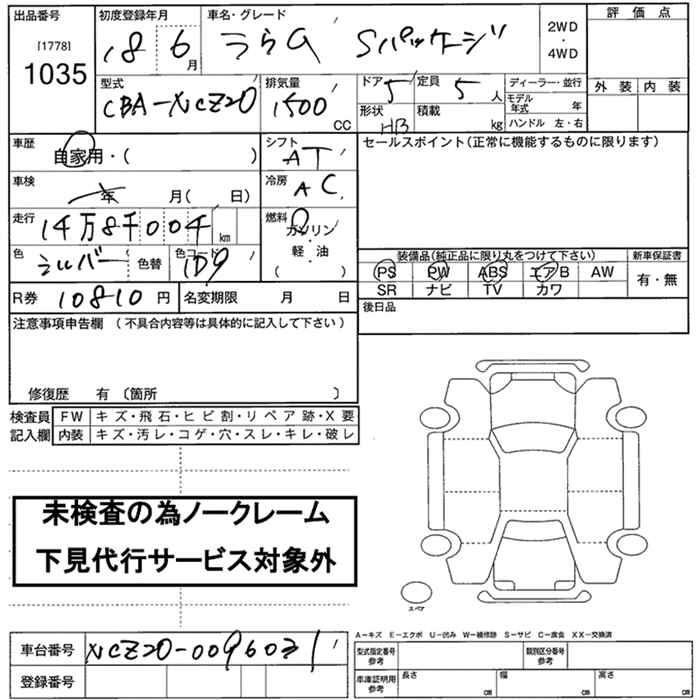 出品番号 初度登録年月 車名・グレード 評価点
[1778] 1035 18 6月 ラウム Sパッケージ 2WD・4WD
型式 排気量 ドア 定員 ディーラー・並行 外装 内装
CBA-NCZ20 1500 CC 5 5人 モデル年式 年
形状 HB 積載 kg ハンドル 左・右
車歴 自家用・( ) シフト AT セールスポイント(正常に機能するものに限ります)
車検 年 月( 日) 冷房 AC
走行 14万8千004 km 燃料 ガソリン・軽・油 ( )
色 シルバー 色替 色コード 1D9 装備品(純正品に限り丸をつけて下さい) 新車保証書
PS PW ABS エアB AW 有・無
SR ナビ TV カワ
R券 10810円 名変期限 月 日 後日品
注意事項申告欄 (不具合内容等は具体的に記入して下さい)
修復歴 有 〔箇所 〕
検査員記入欄 FW キズ・飛石・ヒビ割・リペア跡・X要
内装 キズ・汚レ・コゲ・穴・スレ・キレ・破レ
未検査の為ノークレーム
下見代行サービス対象外
スペア
A−キズ E−エクボ U−凹み W−補修跡 S−サビ C−腐食 XX−交換済
車台番号 NCZ20-0096031 型式指定番号 参考 類別区分番号 参考
登録番号 車庫証明用 参考 長さ cm 幅 cm 高さ cm